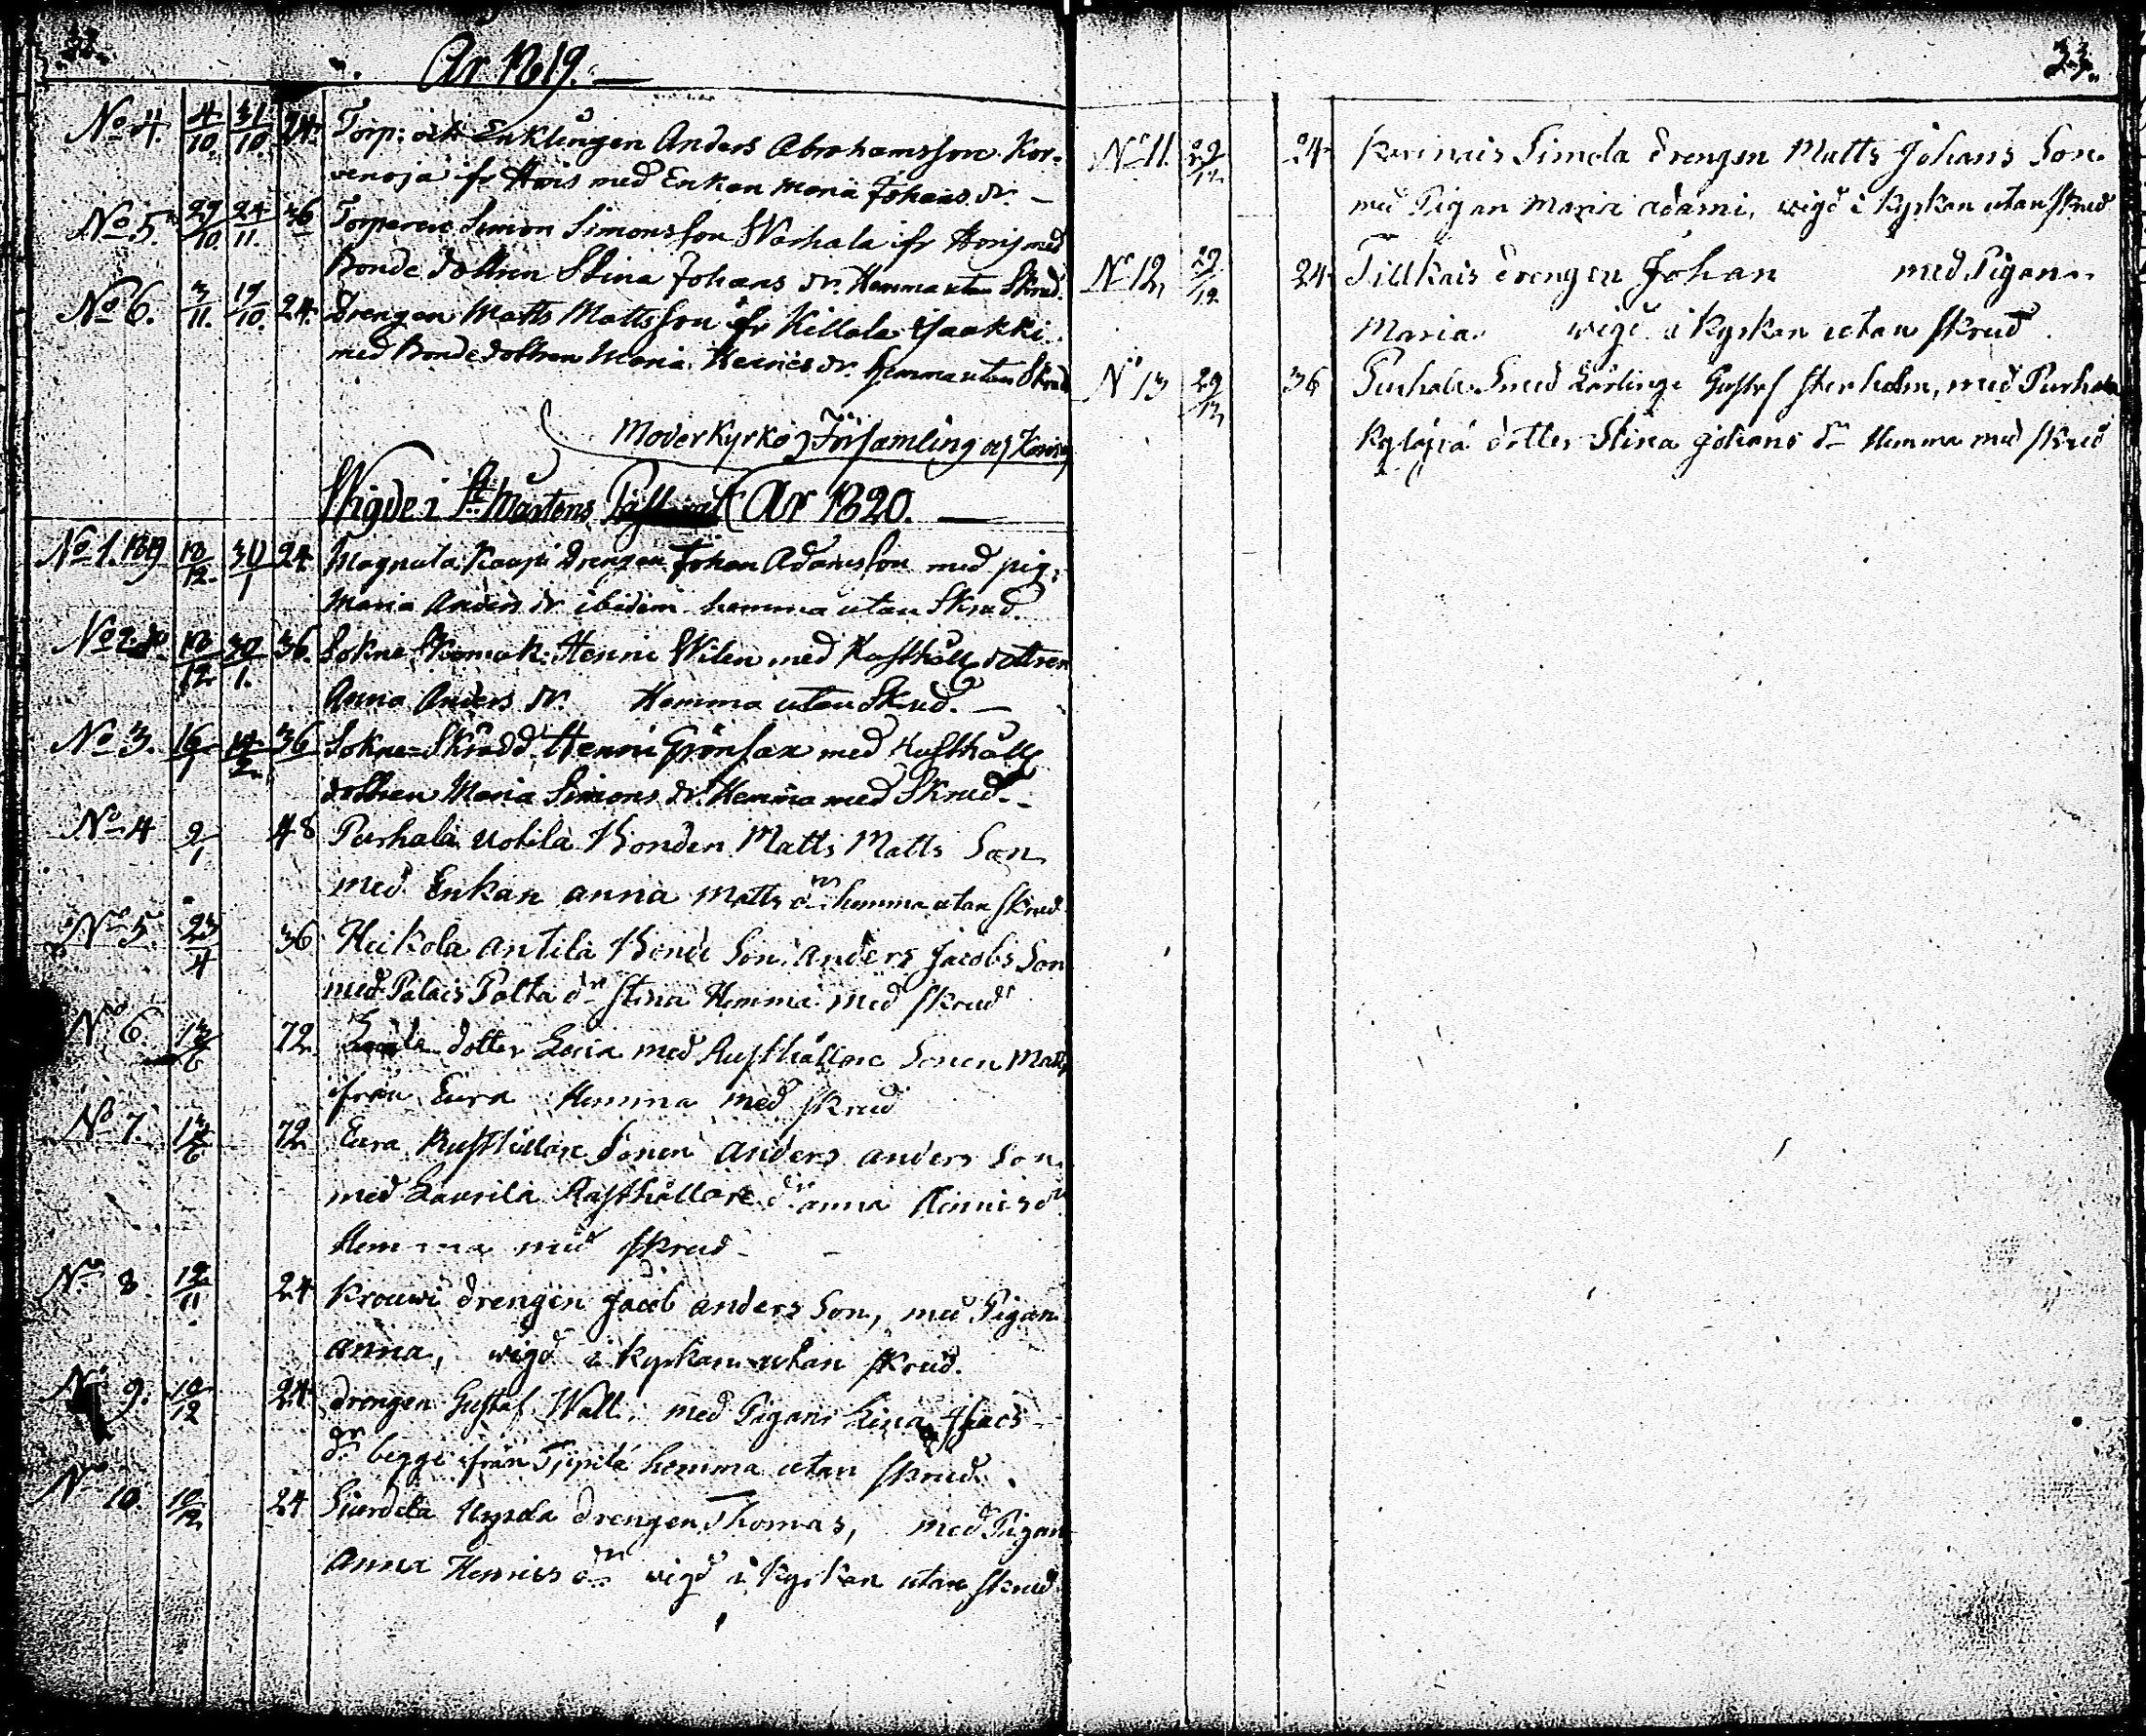 År 1819.
No 4. 4/10 31/10 24. Torp: och Enklingen Anders Abrahamsson Kor-
venoja ifr Honis med Enkan Maria Johans dr.
No 5. 29/10 24/11. 36 Torparen Simon Simonsson Warhala ifr Honis med
Bonde dottren Stina Johans dr. Hemma utan Skrud.
No 6. 3/11. 17/10. 24. Drengen Matts Mattsson ifr Killala Jaakki
med Bondedottren Maria Henrics dr. hemma utan Skrud
Moderkyrko Församling af
Wigde i St Mårtens År 1820.
No 1. 1819 18/12. 30/1 24 Magnula Kaupi Drengen Johan Adamsson med pig.
Maria Anders dr ibidem hemma utan Skrud.
No 2. do 18/12 30/1. 36. Sokne Skomak: Henric Wilen med Rusthålls dottren
Anna Anders dr. Hemma utan Skrud.
No 3. 16/1 14/2. 36 Sokne-Skrädd. Henric Grönfax med Rusthålls
dottren Maria Simons dr. Hemma med Skrud.
No 4 9/1 48 Purhala Uotila Bonden Matts Matts Son
med Enkan anna Matts dr hemma utan skrud
No 5. 23/4 36 Heikola antila Bonde Son anders Jacobs Son
med Palais Palta dr stina Hemma med skrud
No 6. 13/6 72. dotter Lovisa med Rusthållare Sonen Matts
från Eura Hemma med skrud
No 7. 13/6 72 Eura Rusthållare Sonen anders anders Son
med Laurila Rusthållare dr anna Henrics dr
Hemma med skrud
No 8. 12/11 24 Krouvi drengen Jacob anders Son, med Pigan
anna, wigd i kyrkan utan skrud.
No 9. 10/12 24 drengen Gustaf Wall: med Pigan Lisa Isacs
dr begge från Tjipilä hemma utan skrud.
No 10. 10/12 24 drengen Thomas, med Pigan
Anna Henrics dr wigd i kyrkan utan skrud
33.
No 11. 29/12 24 Karinais Simola drengen Matts Johans Son
med Pigan Maria adami, wigd i kyrkan utan skrud
No 12, 29/12. 24 Tillkais drengen Johan med Pigan
Maria wigd i kyrkan utan skrud.
No 13 29/12 36 Purhala Smed Lärlinge Gustaf Sterholm, med Purhala
Kyläpää dotter Stina Johans dr Hemma med skrud